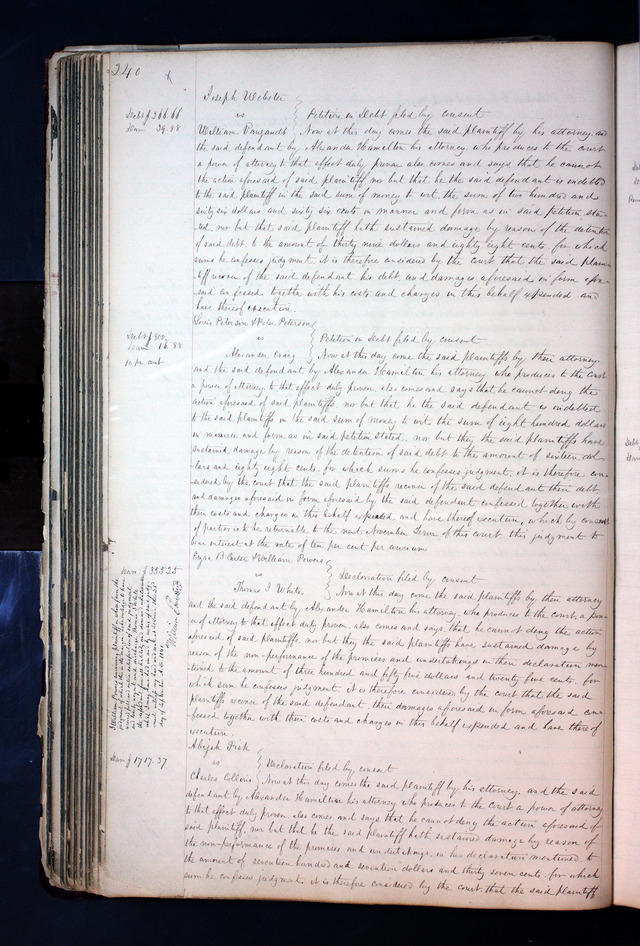 240
Joseph Webster
vs
Petition in Debt filed by consent
Debt $266.66
Dam 39.88
William Now at this day comes the said plaintiff by his attorney, and
the said defendant by Alexander Hamilton his attorney, who produces to the court
a power of attorney to that effect duly proven also comes and says that he cannot
the action aforesaid of said plaintiff, nor but that he the said defendant is indebted
to the said plaintiff in the said sum of money to wit, the sum of two hundred and
sixty six dollars and sixty six cents in manner and form as in said petition sta-
ted, nor but that said plaintiff hath sustained damage by reason of the detention
of said debt, to the amount of thirty nine dollars and eighty eight cents, for which
sums he confesses judgment, it is therefore considered by the court that the said plain-
tiff recover of the said defendant his debt, and damages aforesaid in form afore-
said confessed together with his costs and charges in this behalf expended and
have thereof execution.
Lewis Peterson & Peter Peterson
vs
Petition in Debt filed by consent
Debt $800.
Dam 16.88
10 per cent
Alexander Craig Now at this day come the said plaintiffs by their attorney,
and the said defendant by Alexander Hamilton his attorney who produces to the Court
a power of Attorney to that effect duly proven, also comes and says that he cannot deny the
action aforesaid of said plaintiffs, nor but that he the said defendant is indebted
to the said plaintiffs in the said sum of money to wit, the sum of eight hundred dollars
in manner and form as in said petition stated, nor but they the said plaintiffs have
sustained damage by reason of the detention of said debt to the amount of sixteen dol-
lars and eighty eight cents, for which sums he confesses judgment, it is therefore con-
sidered by the court that the said plaintiffs recover of the said defendant their debt
and damages aforesaid in form aforesaid by the said defendant confessed together with
their costs and charges in this behalf expended and have thereof execution, which by consent
of parties is to be returnable to the next November Term of this court, this judgment to
bear interest at the rate of ten per cent per annum
Ezra B Carter & William Powers
vs
Declaration filed by consent
Dam $355.25
Thomas J White Now at this day come the said plaintiffs by their attorney
and the said defendant by Alexander Hamilton his attorney, who produces to the court, a pow-
er of attorney to that effect duly proven, also comes and says, that he cannot deny the action
aforesaid of said plaintiffs, nor but they the said plaintiffs have sustained damage by
reason of the non-performance of the promises and undertakings in their declaration men-
tioned to the amount of three hundred and fifty five dollars and twenty five cents, for
which sum he confesses judgment it is therefore considered by the court that the said
plaintiffs recover of the said defendant their damages aforesaid in form aforesaid con-
fessed together with their costs and charges in this behalf expended and have thereof
execution.
Abijah Fisk
vs
Declaration filed by consent
Dam $1717.37
Charles Collins Now at this day comes the said plaintiff by his attorney, and the said
defendant by Alexander Hamilton his attorney who produces to the Court a power of attorney
to that effect duly proven, also comes and says that he cannot deny the action aforesaid of
said plaintiff, nor but that he the said plaintiff hath sustained damage by reason of
the non-performance of the promises and undertakings, in his declaration mentioned, to
the amount of seventeen hundred and seventeen dollars and thirty seven cents, for which
sum he confesses judgment, it is therefore considered by the court, that the said plaintiff